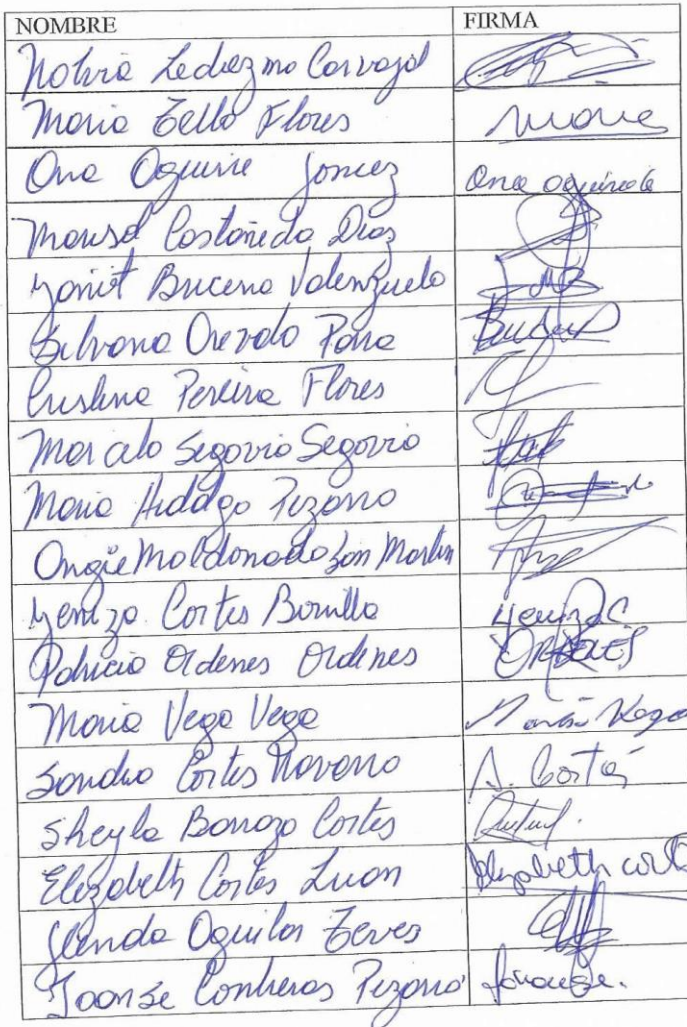 NOMBRE FIRMA
Nolvia Ledezma Carvajal
Maria Tello Flores Maria
Ana Aguirre Gomez Ana Aguirre G
Marisol Castañeda Diaz
Yanit Briceno Valenzuela
Silvana Arevalo Parra
Cristina Pereira Flores
Marcelo Segovia Segovia
Maria Hidalgo Pizarro
Angie Maldonado San Martin
Yeniza Cortes Bonilla Yeniza C
Patricia Ordenes Ordenes ORDENES
Maria Vega Vega Maria Vega
Sandra Cortes Navarro A. Cortés
Sheyla Barraza Cortes
Elizabeth Cortes Luan Elizabeth cort
Glenda Aguilar Teves
Joanse Contreras Pizarro